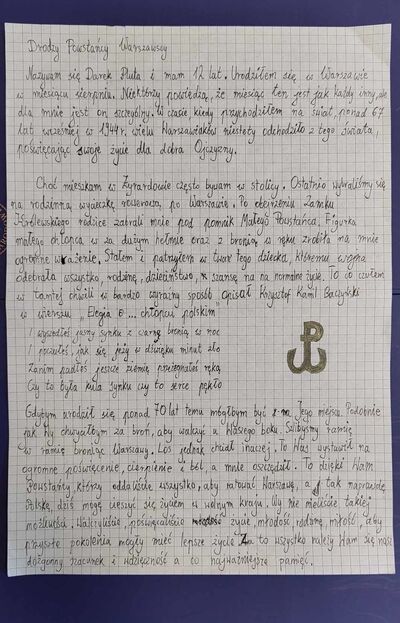 Drodzy Powstańcy Warszawscy
Nazywam się Darek Pluta i mam 12 lat. Urodziłem się w Warszawie
w miesiącu sierpniu. Niektórzy powiedzą, że miesiąc ten jest jak każdy inny, ale
dla mnie jest on szczególny. W czasie, kiedy przychodziłem na świat, ponad 67
lat wcześniej w 1944r. wielu Warszawiaków niestety odchodziło z tego świata,
poświęcając swoje życie dla dobra Ojczyzny.
Choć mieszkam w Żyrardowie często bywam w stolicy. Ostatnio wybraliśmy się
na rodzinną wycieczkę rowerową po Warszawie. Po obejrzeniu Zamku
Królewskiego rodzice zabrali mnie pod pomnik Małego Powstańca. Figurka
małego chłopca w za dużym hełmie oraz z bronią w ręku zrobiła na mnie
ogromne wrażenie. Stałem i patrzyłem w twarz tego dziecka, któremu wojna
odebrała wszystko, rodzinę, dzieciństwo, szansę na na normalne życie. To co czułem
w tamtej chwili w bardzo wyraźny sposób opisał Krzysztof Kamil Baczyński
w wierszu „Elegia o... chłopcu polskim"
I wyszedłeś jasny synku z czarną bronią w noc
I poczułeś, jak się jeży w dźwięku minut zło
Zanim padłeś jeszcze ziemię przeżegnałeś ręką
Czy to była kula synku czy to serce pękło
Gdybym urodził się ponad 70 lat temu mógłbym być na Jego miejscu. Podobnie
jak Wy chwyciłbym za broń, aby walczyć u Waszego boku. Szlibyśmy ramię
w ramię broniąc Warszawy. Los jednak chciał inaczej. To Was wystawił na
ogromne poświęcenie, cierpienie i ból, a mnie oszczędził. To dzięki Wam
Powstańcy, którzy oddaliście wszystko, aby ratować Warszawę, a tak naprawdę
Polskę, dziś mogę cieszyć się życiem w wolnym kraju. Wy nie mieliście takiej
możliwości. Walczyliście poświęcaliście życie, młodość, rodzinę, miłość, aby
przyszłe pokolenia mogły mieć lepsze życie. Za to wszystko należy Wam się nasz
dozgonny szacunek i wdzięczność a co najważniejsze pamięć.